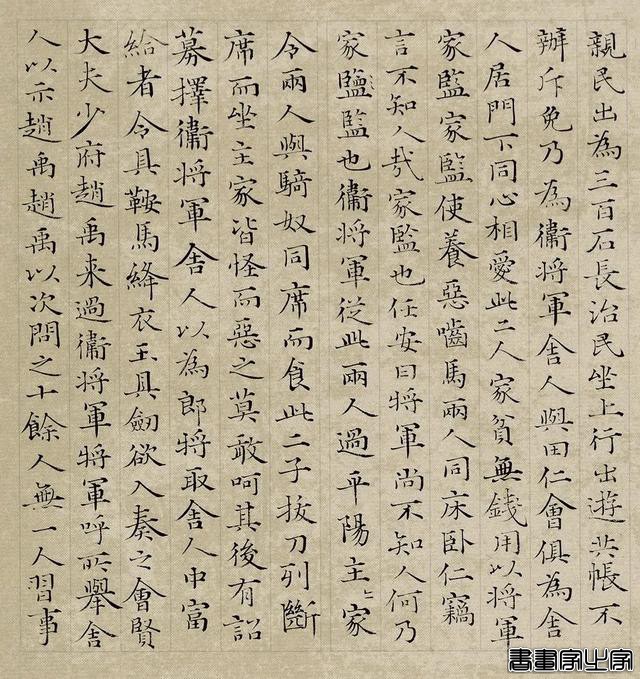 親民出為三百石長治民坐上行出遊共帳不
辦斥免乃為衞將軍舍人與田仁會俱為舍
人居門下同心相愛此二人家貧無錢用以將軍
家監家監使養惡嚙馬兩人同床卧仁竊
言不知人哉家監也任安曰將軍尚不知人何乃
家監也衞將軍從此兩人過平陽主〻家
令兩人與騎奴同席而食此二子拔刀列斷
席而坐主家皆怪而惡之莫敢呵其後有詔
募擇衞將軍舍人以為郎將取舍人中富
給者令具鞍馬絳衣玉具劒欲入奏之會賢
大夫少府趙禹来過衞將軍將軍呼所舉舍
人以示趙禹趙禹以次問之十餘人無一人習事
書畫家之家